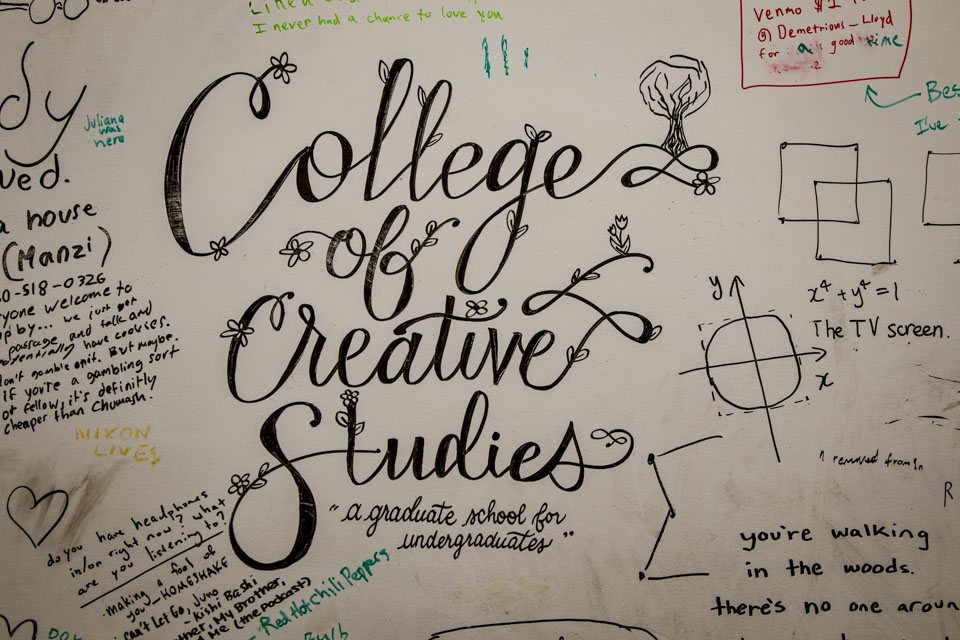 I never had a chance to love you
Venmo $1
@ Demetrious_Lloyd
for a good time
Bes
I've
dy
Juliana
was
here
ved.
a house
(Manzi)
0-518-0326
yone welcome to
by... we just got
passage and talk and
potentially have cookies.
on't gamble on it. But maybe.
if you're a gambling sort
of fellow, it's definitly
cheaper than Chumash.
NIXON
LIVES
College
of
Creative
Studies
"a graduate school for
undergraduates"
y
x⁴ + y⁴ = 1
The TV screen.
x
removed from
R
you're walking
in the woods.
there's no one aroun
do you have headphones
in/on right now? what
are you listening to?
making a fool of
you_HOMESHAKE
can't Let Go, Juno
- Kishi Bashi
other, My Brother,
d Me (the Podcast)
- Red Hot Chili Peppers